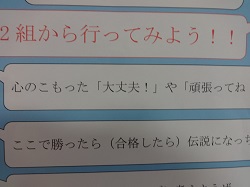 2組から行ってみよう！！
心のこもった「大丈夫！」や「頑張ってね
ここで勝ったら（合格したら）伝説になっち